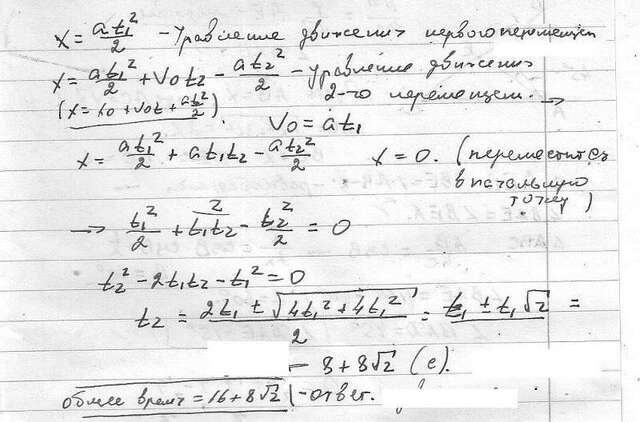 x = at₁²/2 - уравнение движения первого перемещен
x = at₁²/2 + v₀t₂ - at₂²/2 - уравнение движения
2-го перемещен. →
(x = x₀ + v₀t + at²/2)
v₀ = at₁
x = at₁²/2 + at₁t₂ - at₂²/2   x = 0. (переместится
в начальную
точку)
→ t₁²/2 + 2/t₁t₂ - t₂²/2 = 0
t₂² - 2t₁t₂ - t₁² = 0
t₂ = (2t₁ ± √(4t₁² + 4t₁²))/2 = t₁ ± t₁√2 =
= 8 + 8√2 (с).
общее время = 16 + 8√2 - ответ.